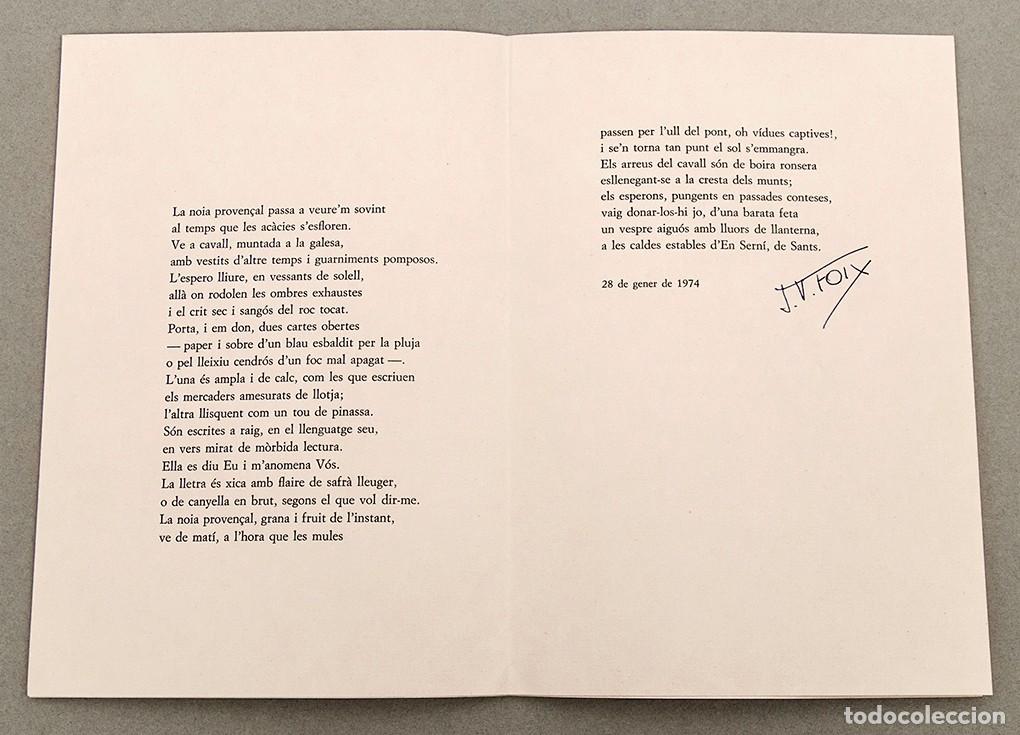 La noia provençal passa a veure'm sovint
al temps que les acàcies s'esfloren.
Ve a cavall, muntada a la galesa,
amb vestits d'altre temps i guarniments pomposos.
L'espero lliure, en vessants de solell,
allà on rodolen les ombres exhaustes
i el crit sec i sangós del roc tocat.
Porta, i em don, dues cartes obertes
— paper i sobre d'un blau esbaldit per la pluja
o pel lleixiu cendrós d'un foc mal apagat —.
L'una és ampla i de calc, com les que escriuen
els mercaders amesurats de llotja;
l'altra llisquent com un tou de pinassa.
Són escrites a raig, en el llenguatge seu,
en vers mirat de mòrbida lectura.
Ella es diu Eu i m'anomena Vós.
La lletra és xica amb flaire de safrà lleuger,
o de canyella en brut, segons el que vol dir-me.
La noia provençal, grana i fruit de l'instant,
ve de matí, a l'hora que les mules
passen per l'ull del pont, oh vídues captives!,
i se'n torna tan punt el sol s'emmangra.
Els arreus del cavall són de boira ronsera
esllenegant-se a la cresta dels munts;
els esperons, pungents en passades conteses,
vaig donar-los-hi jo, d'una barata feta
un vespre aiguós amb lluors de llanterna,
a les caldes estables d'En Serní, de Sants.
28 de gener de 1974
J. V. FOIX
todocoleccion